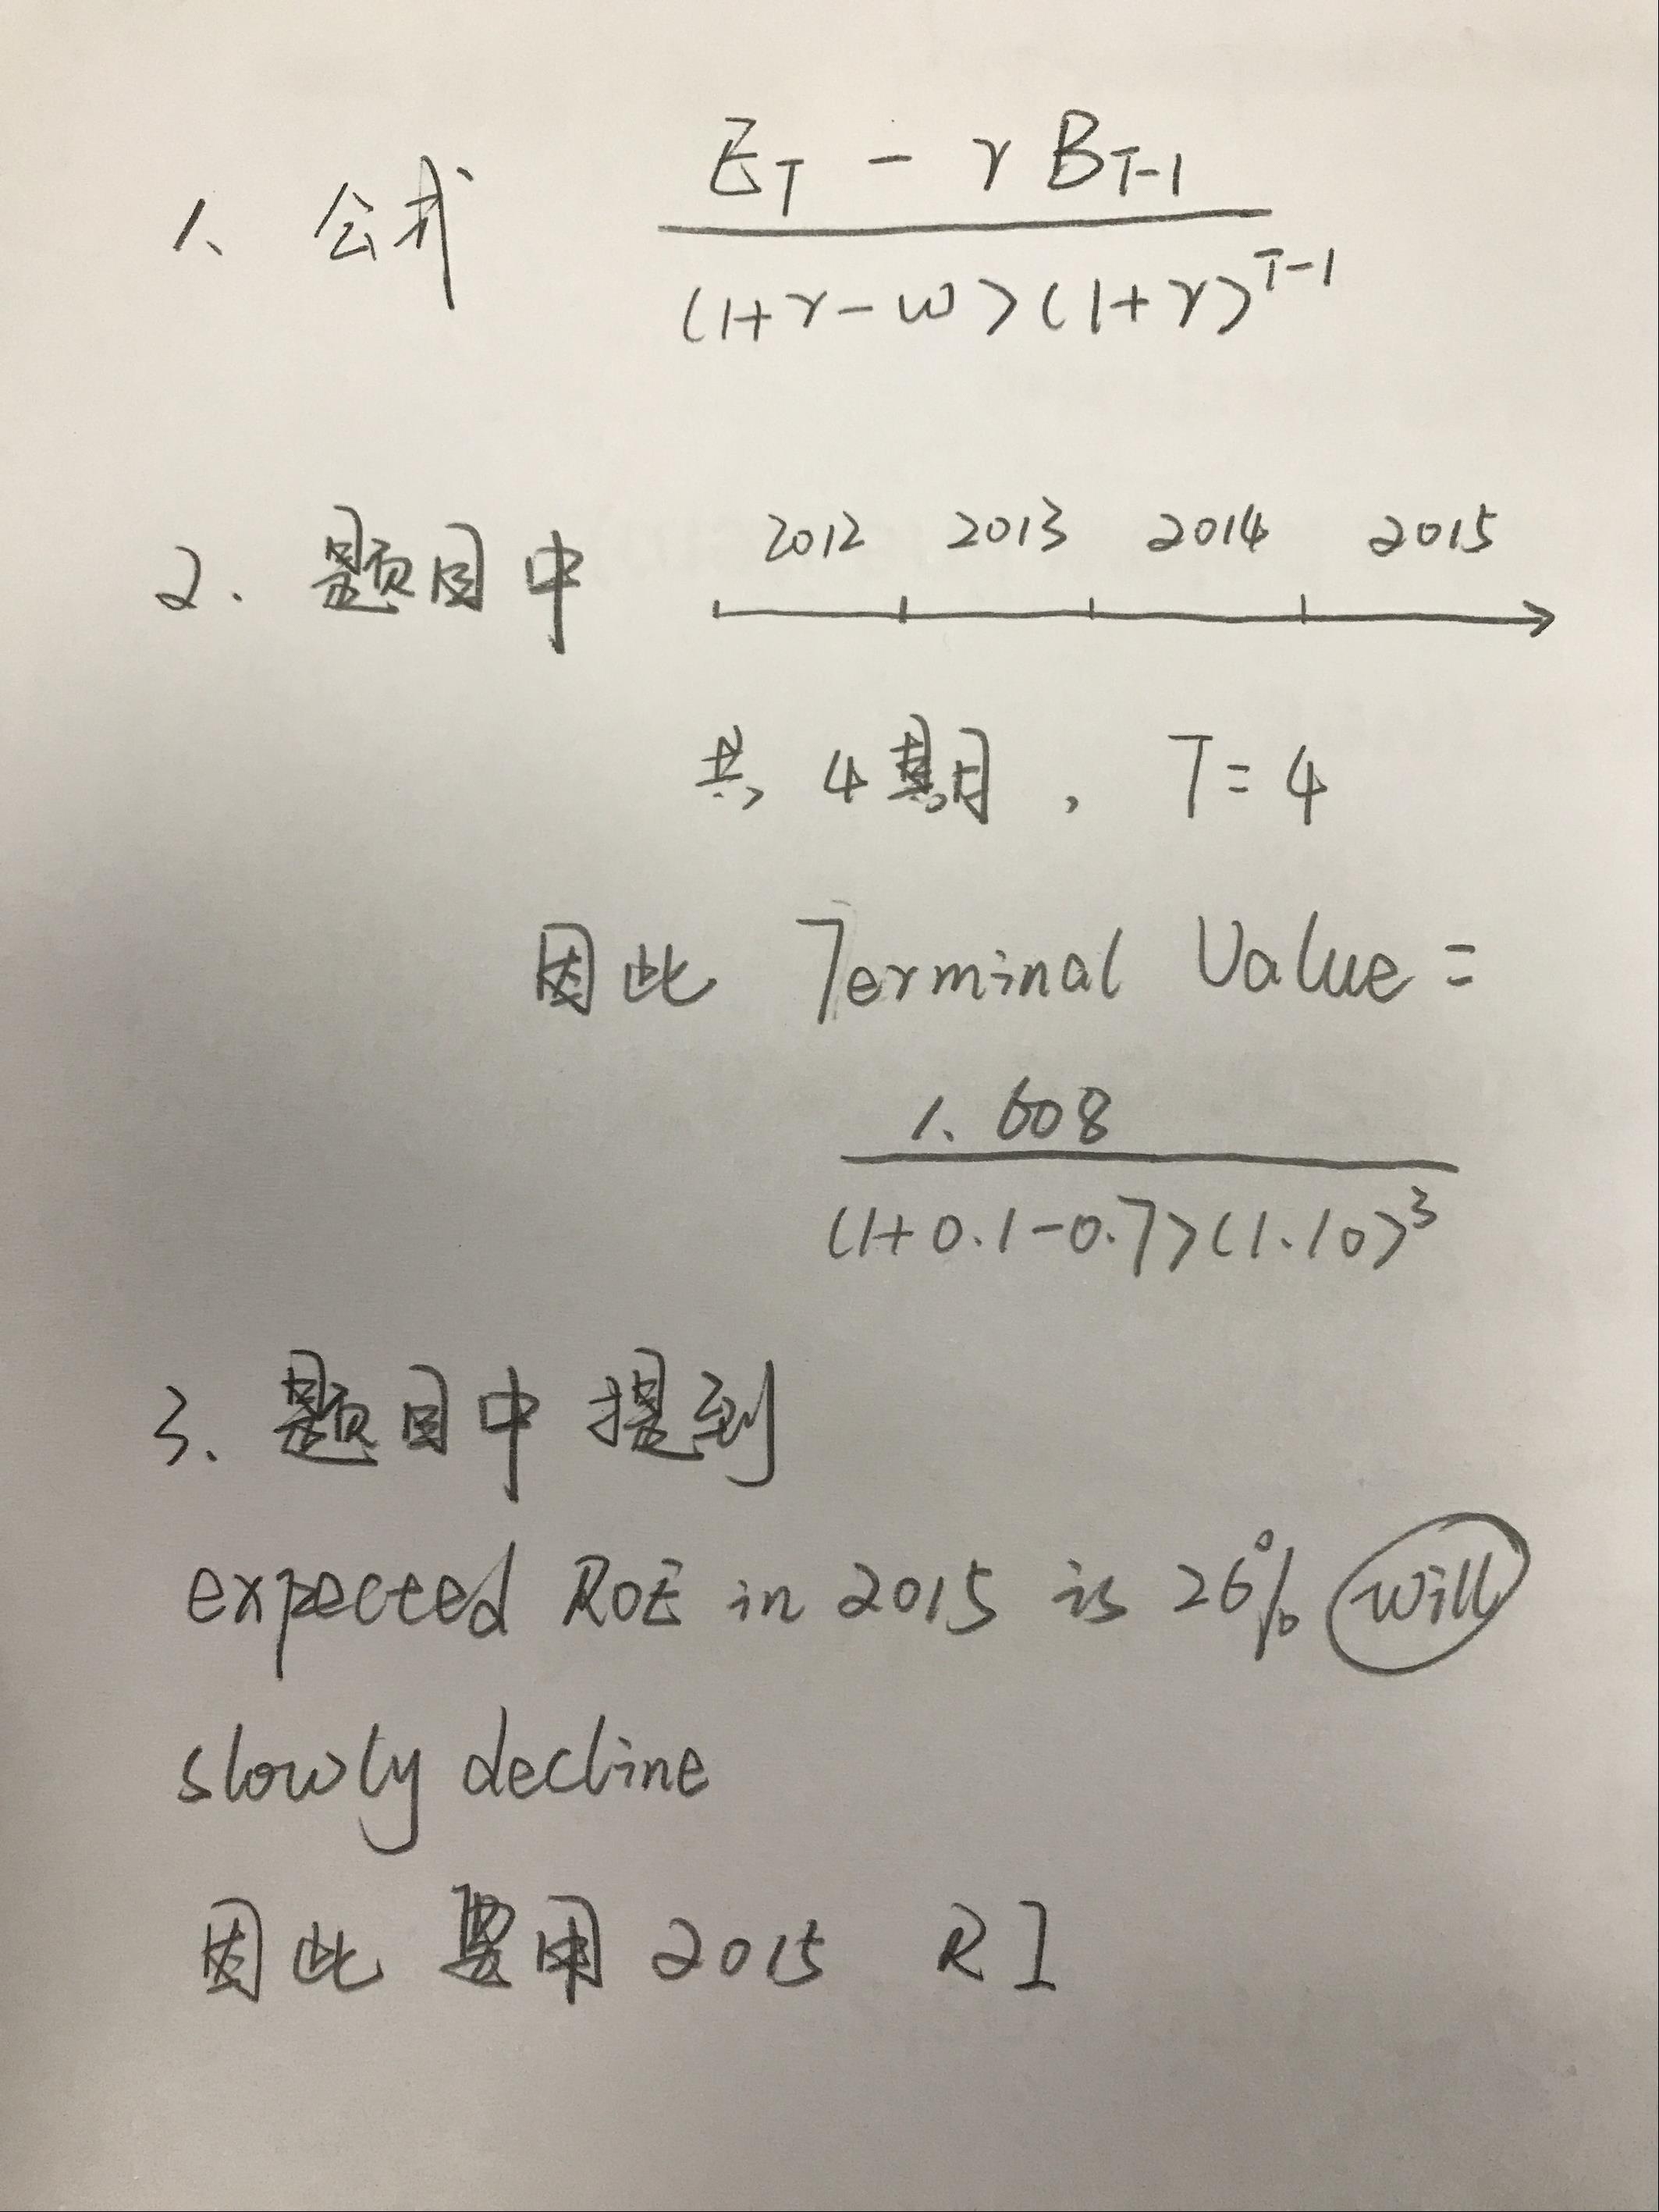 1、公式 (E_T - rB_{T-1}) / ((1+r-ω)(1+r)^{T-1})
2. 题目中 2012 2013 2014 2015
共 4 期, T = 4
因此 Terminal Value =
1.608 / ((1+0.1-0.7)(1.10)^3)
3. 题目中提到
expected ROE in 2015 is 26% will
slowly decline
因此 要用 2015 RI